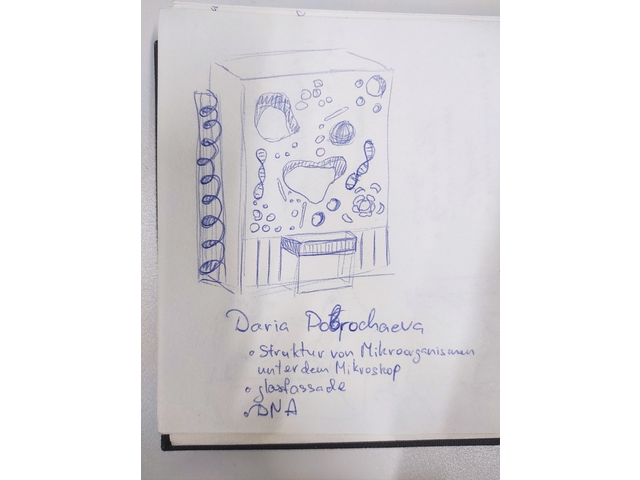 Daria Dobrochaeva
• Struktur von Mikroorganismen
unter dem Mikroskop
• glasfassade
• DNA